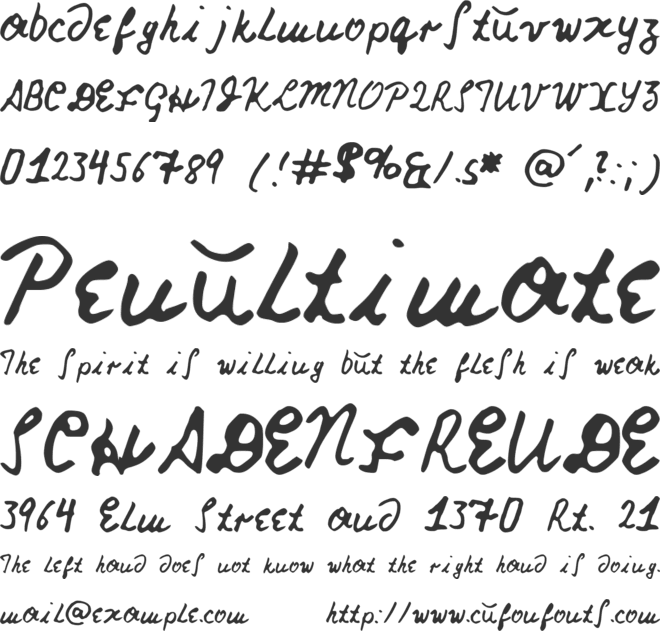 abcdefghijklmnopqrstuvwxyz
ABCDEFGHIJKLMNOPQRSTUVWXYZ
0123456789 (!#$%&/.s* @´,?:;)
Penultimate
The spirit is willing but the flesh is weak
SCHADENFREUDE
3964 Elm Street and 1370 Rt. 21
The left hand does not know what the right hand is doing.
mail@example.com http://www.cufonfonts.com